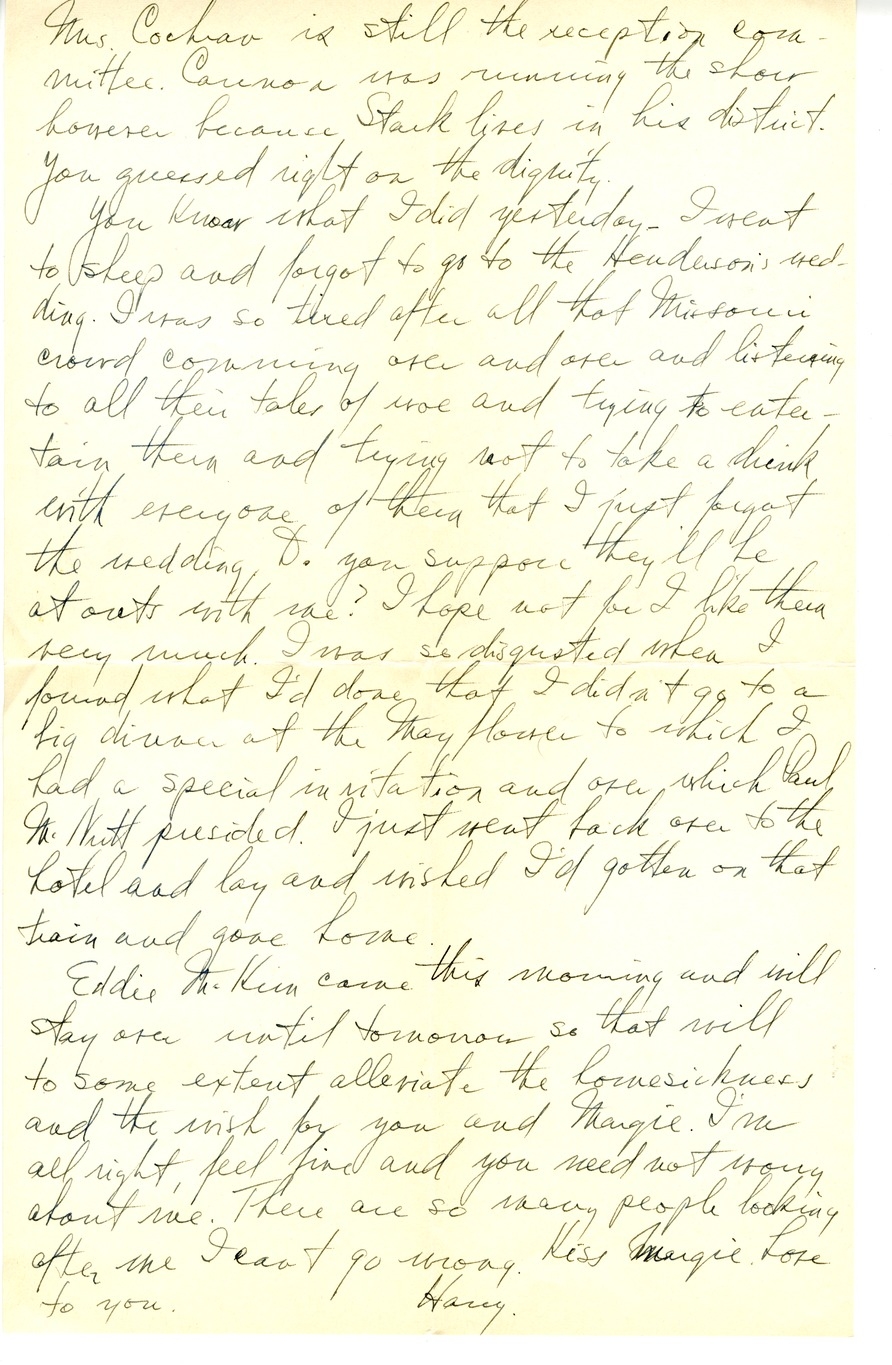 Mrs. Cochran is still the reception com-
mittee. Cannon was running the show
however because Stark lives in his district.
You guessed right on the dignity.
You know what I did yesterday - I went
to sleep and forgot to go to the Henderson's wed-
ding. I was so tired after all that Missouri
crowd comming over and over and listening
to all their tales of woe and trying to enter-
tain them and trying not to take a drink
with everyone of them that I just forgot
the wedding. Do you suppose they'll be
at outs with me? I hope not for I like them
very much. I was so disgusted when I
found what I'd done that I didn't go to a
big dinner at the Mayflower to which I
had a special invitation and over which Paul
McNutt presided. I just went back over to the
hotel and lay and wished I'd gotten on that
train and gone home.
Eddie McKim came this morning and will
stay over until tomorrow so that will
to some extent alleviate the homesickness
and the wish for you and Margie. I'm
all right, feel fine and you need not worry
about me. There are so many people looking
after me I can't go wrong. Kiss Margie. Love
to you. Harry.